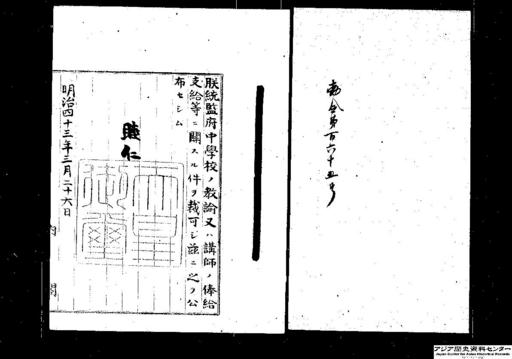 勅令第百六十五号
朕統監府中學校ノ教諭又ハ講師ノ俸給
支給等ニ關スル件ヲ裁可シ茲ニ之ヲ公
布セシム
睦仁
天皇御璽
明治四十三年三月二十六日
内閣
アジア歴史資料センター
Japan Center for Asian Historical Records